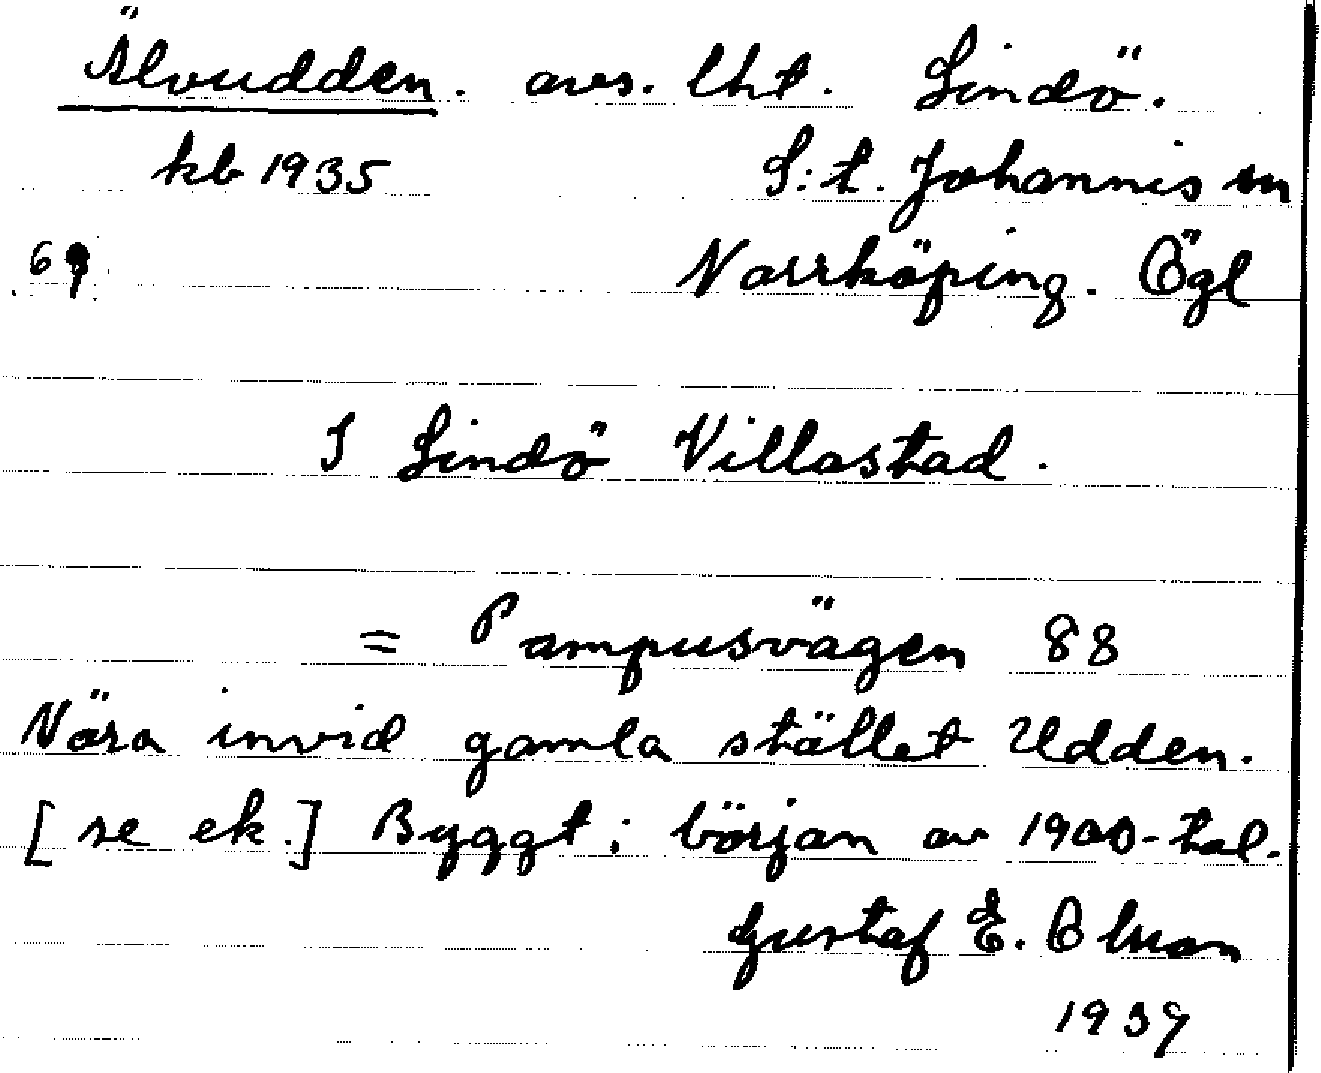 Älvudden. avs. lht. Lindö.
kb 1935 S:t. Johannis sn
Norrköping. Ögl
I Lindö Villastad.
= Pampusvägen 88
Nära invid gamla stället Udden.
[se ek.] Byggt i början av 1900-tal.
Gustaf E. Olsson
1939